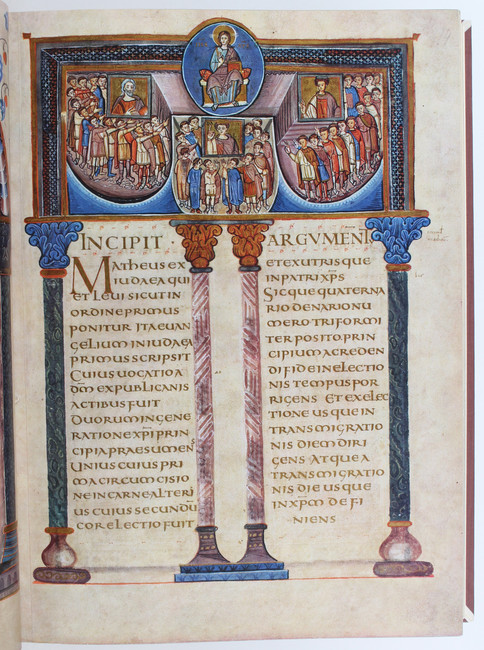 INCIPIT · ARGVMENT
Matheus ex
iudaea qui
et Leui sicut in
ordine primus
ponitur ita euan
gelium in iudaea
primus scripsit
Cuius uocatio a
dm̄ ex publicanis
actibus fuit
duorum in gene
ratione xp̄i prin
cipia praesumens
unius cuius pri
ma circumcisio
ne in carne alteri
us cuius secundū
cor electio fuit
et ex utrisque
in patri xp̄s
Sic que quaterna
rio denario nu
mero triformi
ter posito prin
cipium a creden
di fide in electio
nis tempus por
rigens et ex elec
tione usque in
transmigratio
nis diem diri
gens atque a
transmigratio
nis die usque
in xp̄m defi
niens